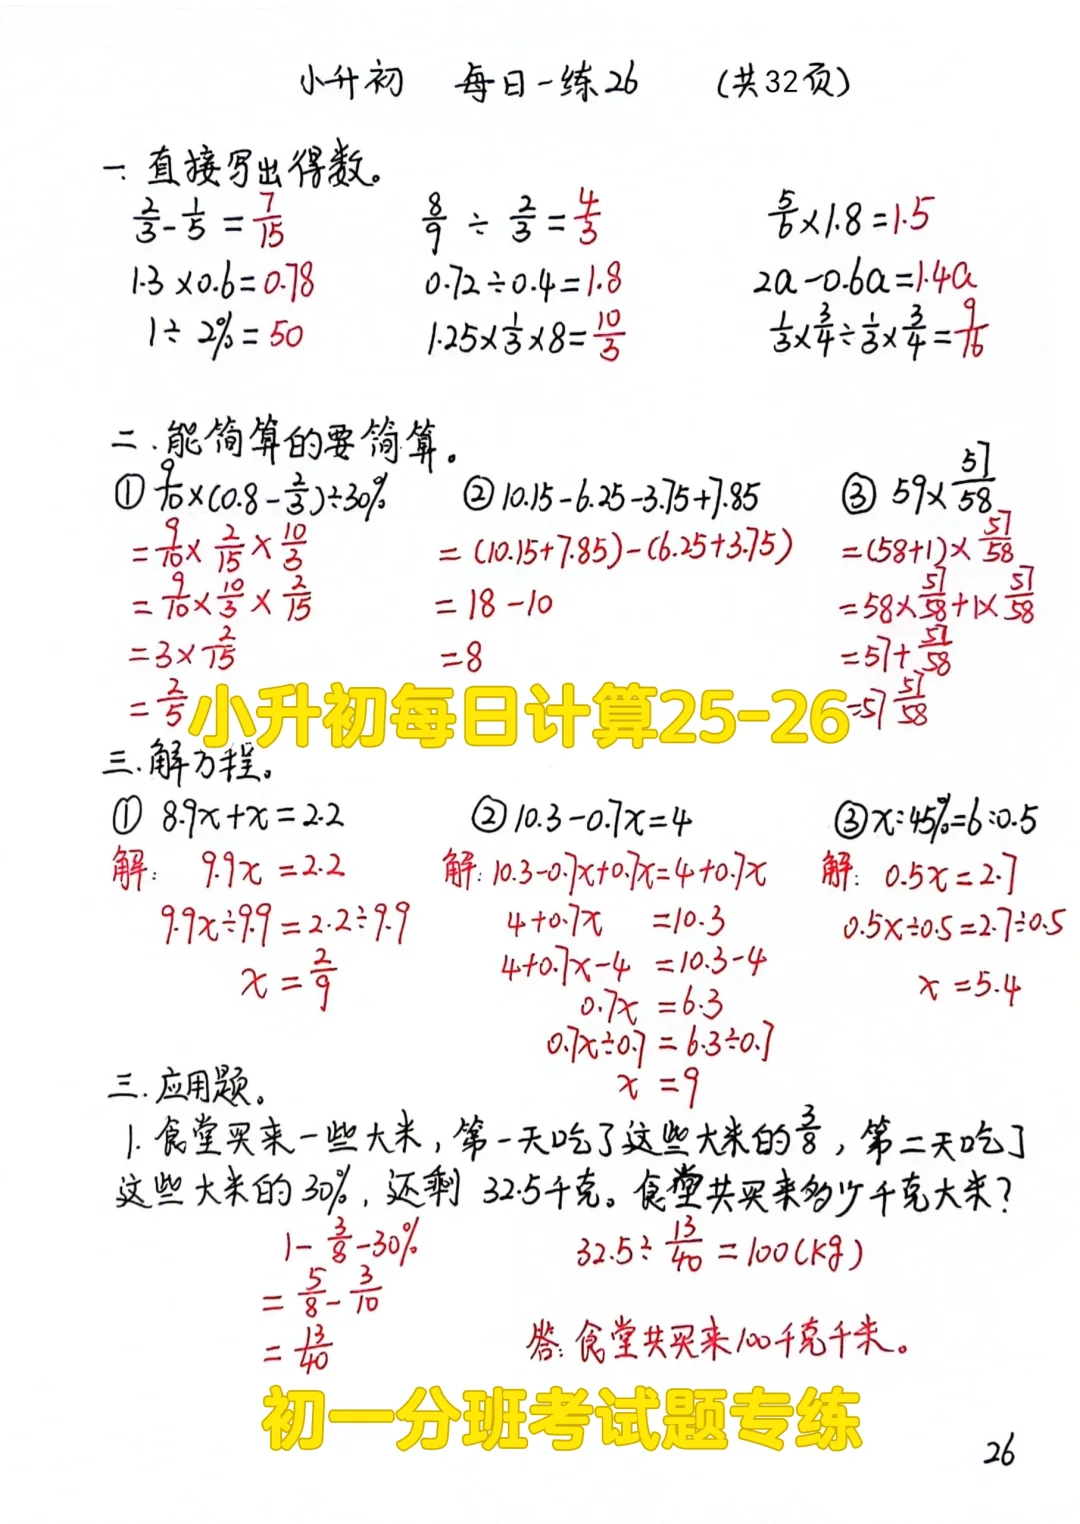 小升初 每日一练26 (共32页)
一. 直接写出得数。
2/3-1/5=7/15 8/9÷2/3=4/3 5/6×1.8=1.5
1.3×0.6=0.78 0.72÷0.4=1.8 2a-0.6a=1.4a
1÷2%=50 1.25×1/3×8=10/3 1/3×3/4÷1/3×3/4=9/16
二.能简算的要简算。
①9/10×(0.8-2/3)÷30% ②10.15-6.25-3.75+7.85 ③59×57/58
=9/10×2/15×10/3 =(10.15+7.85)-(6.25+3.75) =(58+1)×57/58
=9/10×10/3×2/15 =18-10 =58×57/58+1×57/58
=3×2/15 =8 =57+57/58
=2/5 =57 57/58
小升初每日计算25-26
三.解方程。
①8.9x+x=2.2 ②10.3-0.7x=4 ③x:45%=6:0.5
解: 9.9x=2.2 解:10.3-0.7x+0.7x=4+0.7x 解: 0.5x=2.7
9.9x÷9.9=2.2÷9.9 4+0.7x=10.3 0.5x÷0.5=2.7÷0.5
x=2/9 4+0.7x-4=10.3-4 x=5.4
0.7x=6.3
0.7x÷0.7=6.3÷0.7
x=9
三.应用题。
1.食堂买来一些大米,第一天吃了这些大米的3/8,第二天吃了
这些大米的30%,还剩32.5千克。食堂共买来多少千克大米?
1-3/8-30% 32.5÷13/40=100(kg)
=5/8-3/10
=13/40 答:食堂共买来100千克千米。
初一分班考试题专练
26